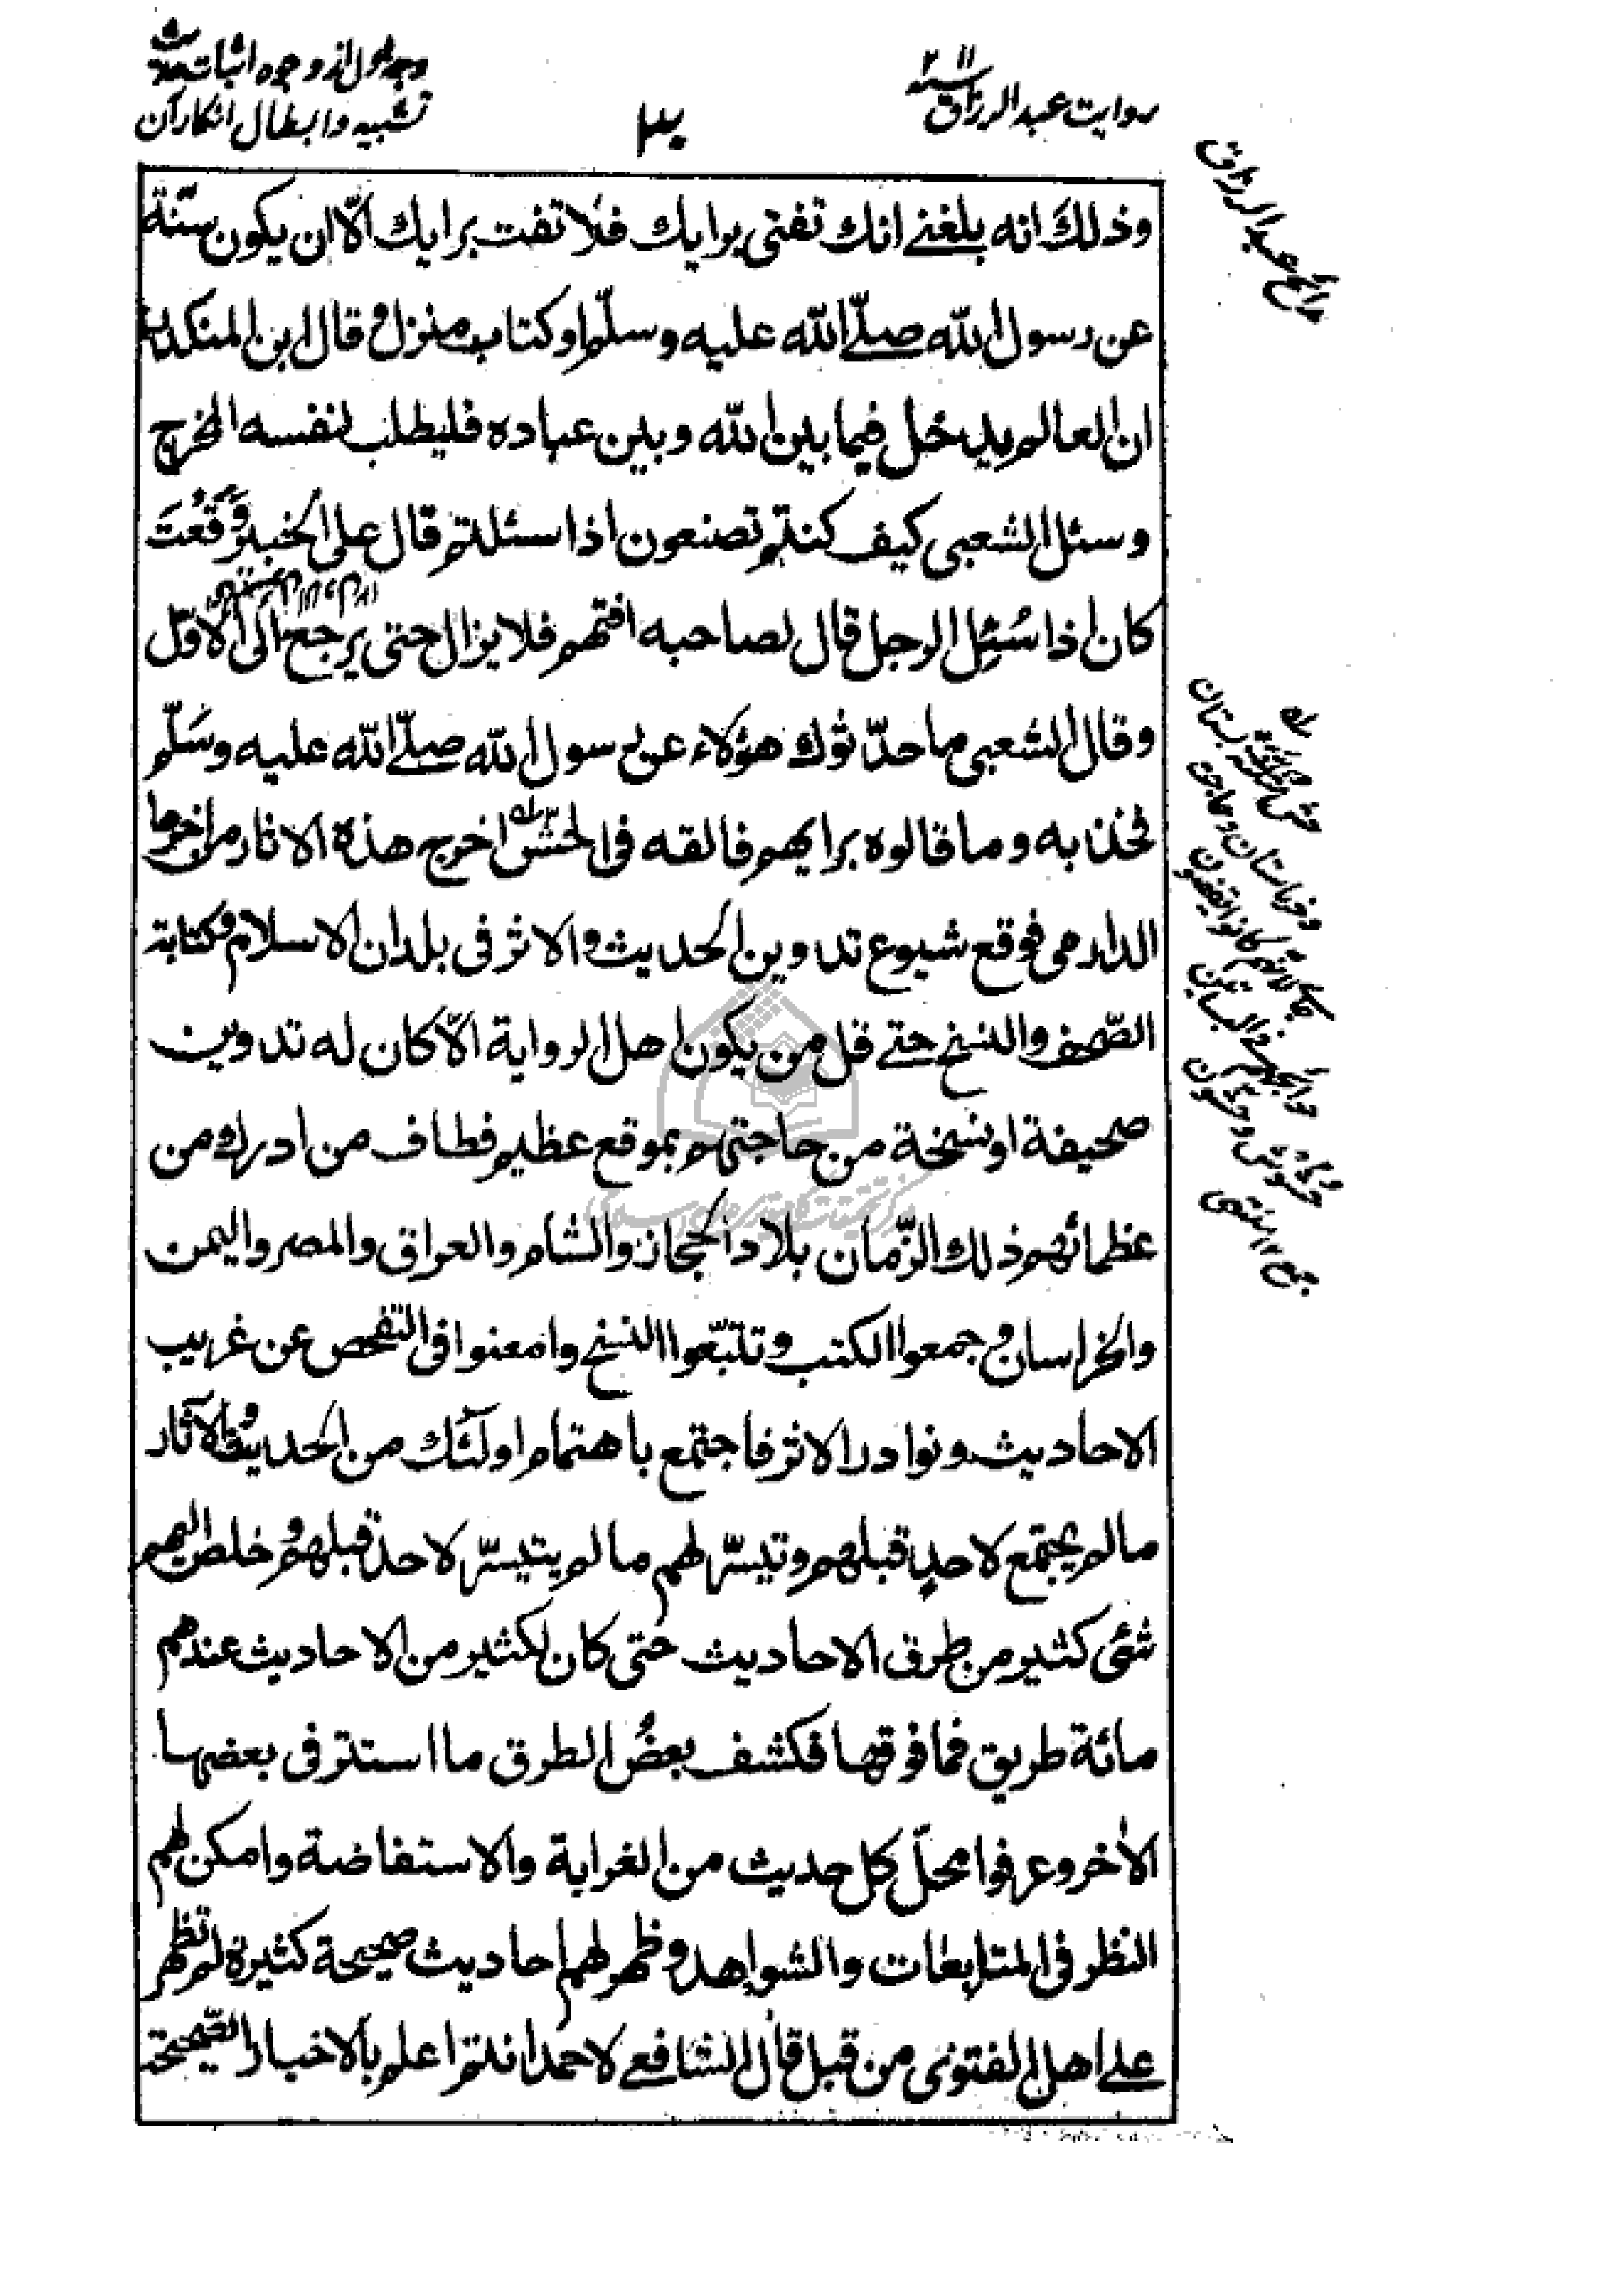 روایت عبد الرزاق
وجه اول از وجوه اثبات حدیث
تشبیه و ابطال انکار آن
وذلك انه بلغنے انك تفتی برايك فلا تفت برايك الّا ان يكون سنّة
عن رسول الله صلّے الله عليه وسلّم او كتاب منزل وقال ابن المنكدر
ان العالم يدخل فيما بين الله وبين عباده فليطلب لنفسه المخرج
وسئل الشعبی كيف كنتم تصنعون اذا سئلتم قال علی الخبير وَقَعْتَ
كان اذا سُئِل الرجل قال لصاحبه افتهم فلا يزال حتی يرجع الی الاوّل
وقال الشعبی ما حدّثوك هؤلاء عن رسول الله صلّے الله عليه وسَلّم
فخذ به وما قالوه برايهم فالقه فی الحشّ اخرج هذه الاثار من اخرها
الدارمی فوقع شيوع تدوين الحديث والاثر فی بلدان الاسلام وكتابة
الصّحف والنسخ حتے قل من يكون اهل الرواية الّا كان له تدوين
صحيفة او نسخة من حاجتهم بموقع عظيم فطاف من ادرك من
عظمائهم ذلك الزّمان بلاد الحجاز والشام والعراق والمصر واليمن
والخراسان وجمعوا الكتب وتتبّعوا النسخ وامعنوا فی التفحص عن غريب
الاحاديث ونوادر الاثر فاجتمع باهتمام اولٓئك من الحديث والآثار
مالم يجتمع لاحدٍ قبلهم وتيسّر لهم مالم يتيسّر لاحد قبلهم وخلص اليهم
شئی كثير من طرق الاحاديث حتی كان لكثير من الاحاديث عندهم
مائة طريق فما فوقها فكشف بعضُ الطرق ما استتر فی بعضها
الاٰخر وعرفوا محلّ كل حديث من الغرابة والاستفاضة وامكن لهم
النظر فی المتابعات والشواهد وظهر لهم احاديث صحيحة كثيرة لم تظهر
علے اهل الفتوی من قبل قال الشافعے لاحمد انتم اعلم بالاخبار الصّحيحة